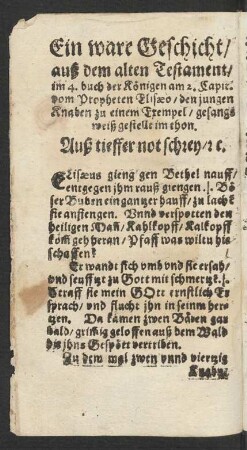 Ein ware Geschicht/
auß dem alten Testament/
im 4. buch der Königen am 2. Capit.
vom Propheten Elisæo/ den jungen
Knaben zu einem Exempel/ gesangs
weiß gestelt im thon.
Auß tieffer not schrey/ ꝛc.
Elisæus gieng gen Bethel nauff/
entgegen jhm rauß giengen .|. Bö
ser Buben ein gantzer hauff/ zu lachē
sie anfiengen. Vnnd verspotten den
heiligen Mañ/ Kahlkopff/ Kalkopff
kom geh heran/ Pfaff was wiltu hie
schaffen?
Er wandt sich vmb vnd sie ersah/
vnd seufftzt zu Gott mit schmertzē .|.
Straff sie mein GOtt ernstlich Er
sprach/ vnd flucht jhn in seinm her-
tzen. Da kamen zwen Bären gar
bald/ grimig geloffen auß dem Wald
die jhns Gespött vertriben.
Zu dem mal zwen vnnd viertzig
Knabē/